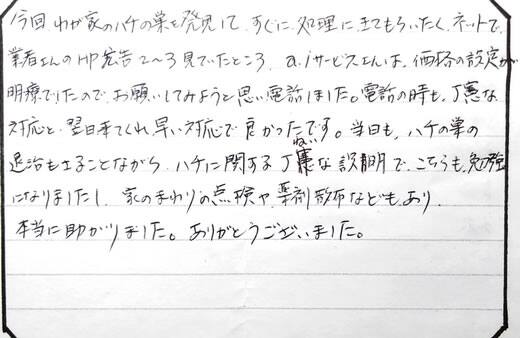 今回わが家のハチの巣を発見して、すぐに処理にきてもらいたく、ネットで、
業者さんのHP広告2〜3見ていたところ、a.iサービスさんは、価格の設定が
明療でしたので、お願いしてみようと思い電話しました。電話の時も、丁憲な
対応と、翌日来てくれ、早い対応で良かったです。当日も、ハチの巣の
退治もさることながら、ハチに関する丁憲ねいな説明で、こちらも、勉強
になりましたし、家のまわりの点検や、薬剤散布などもあり、
本当に助かりました。ありがとうございました。